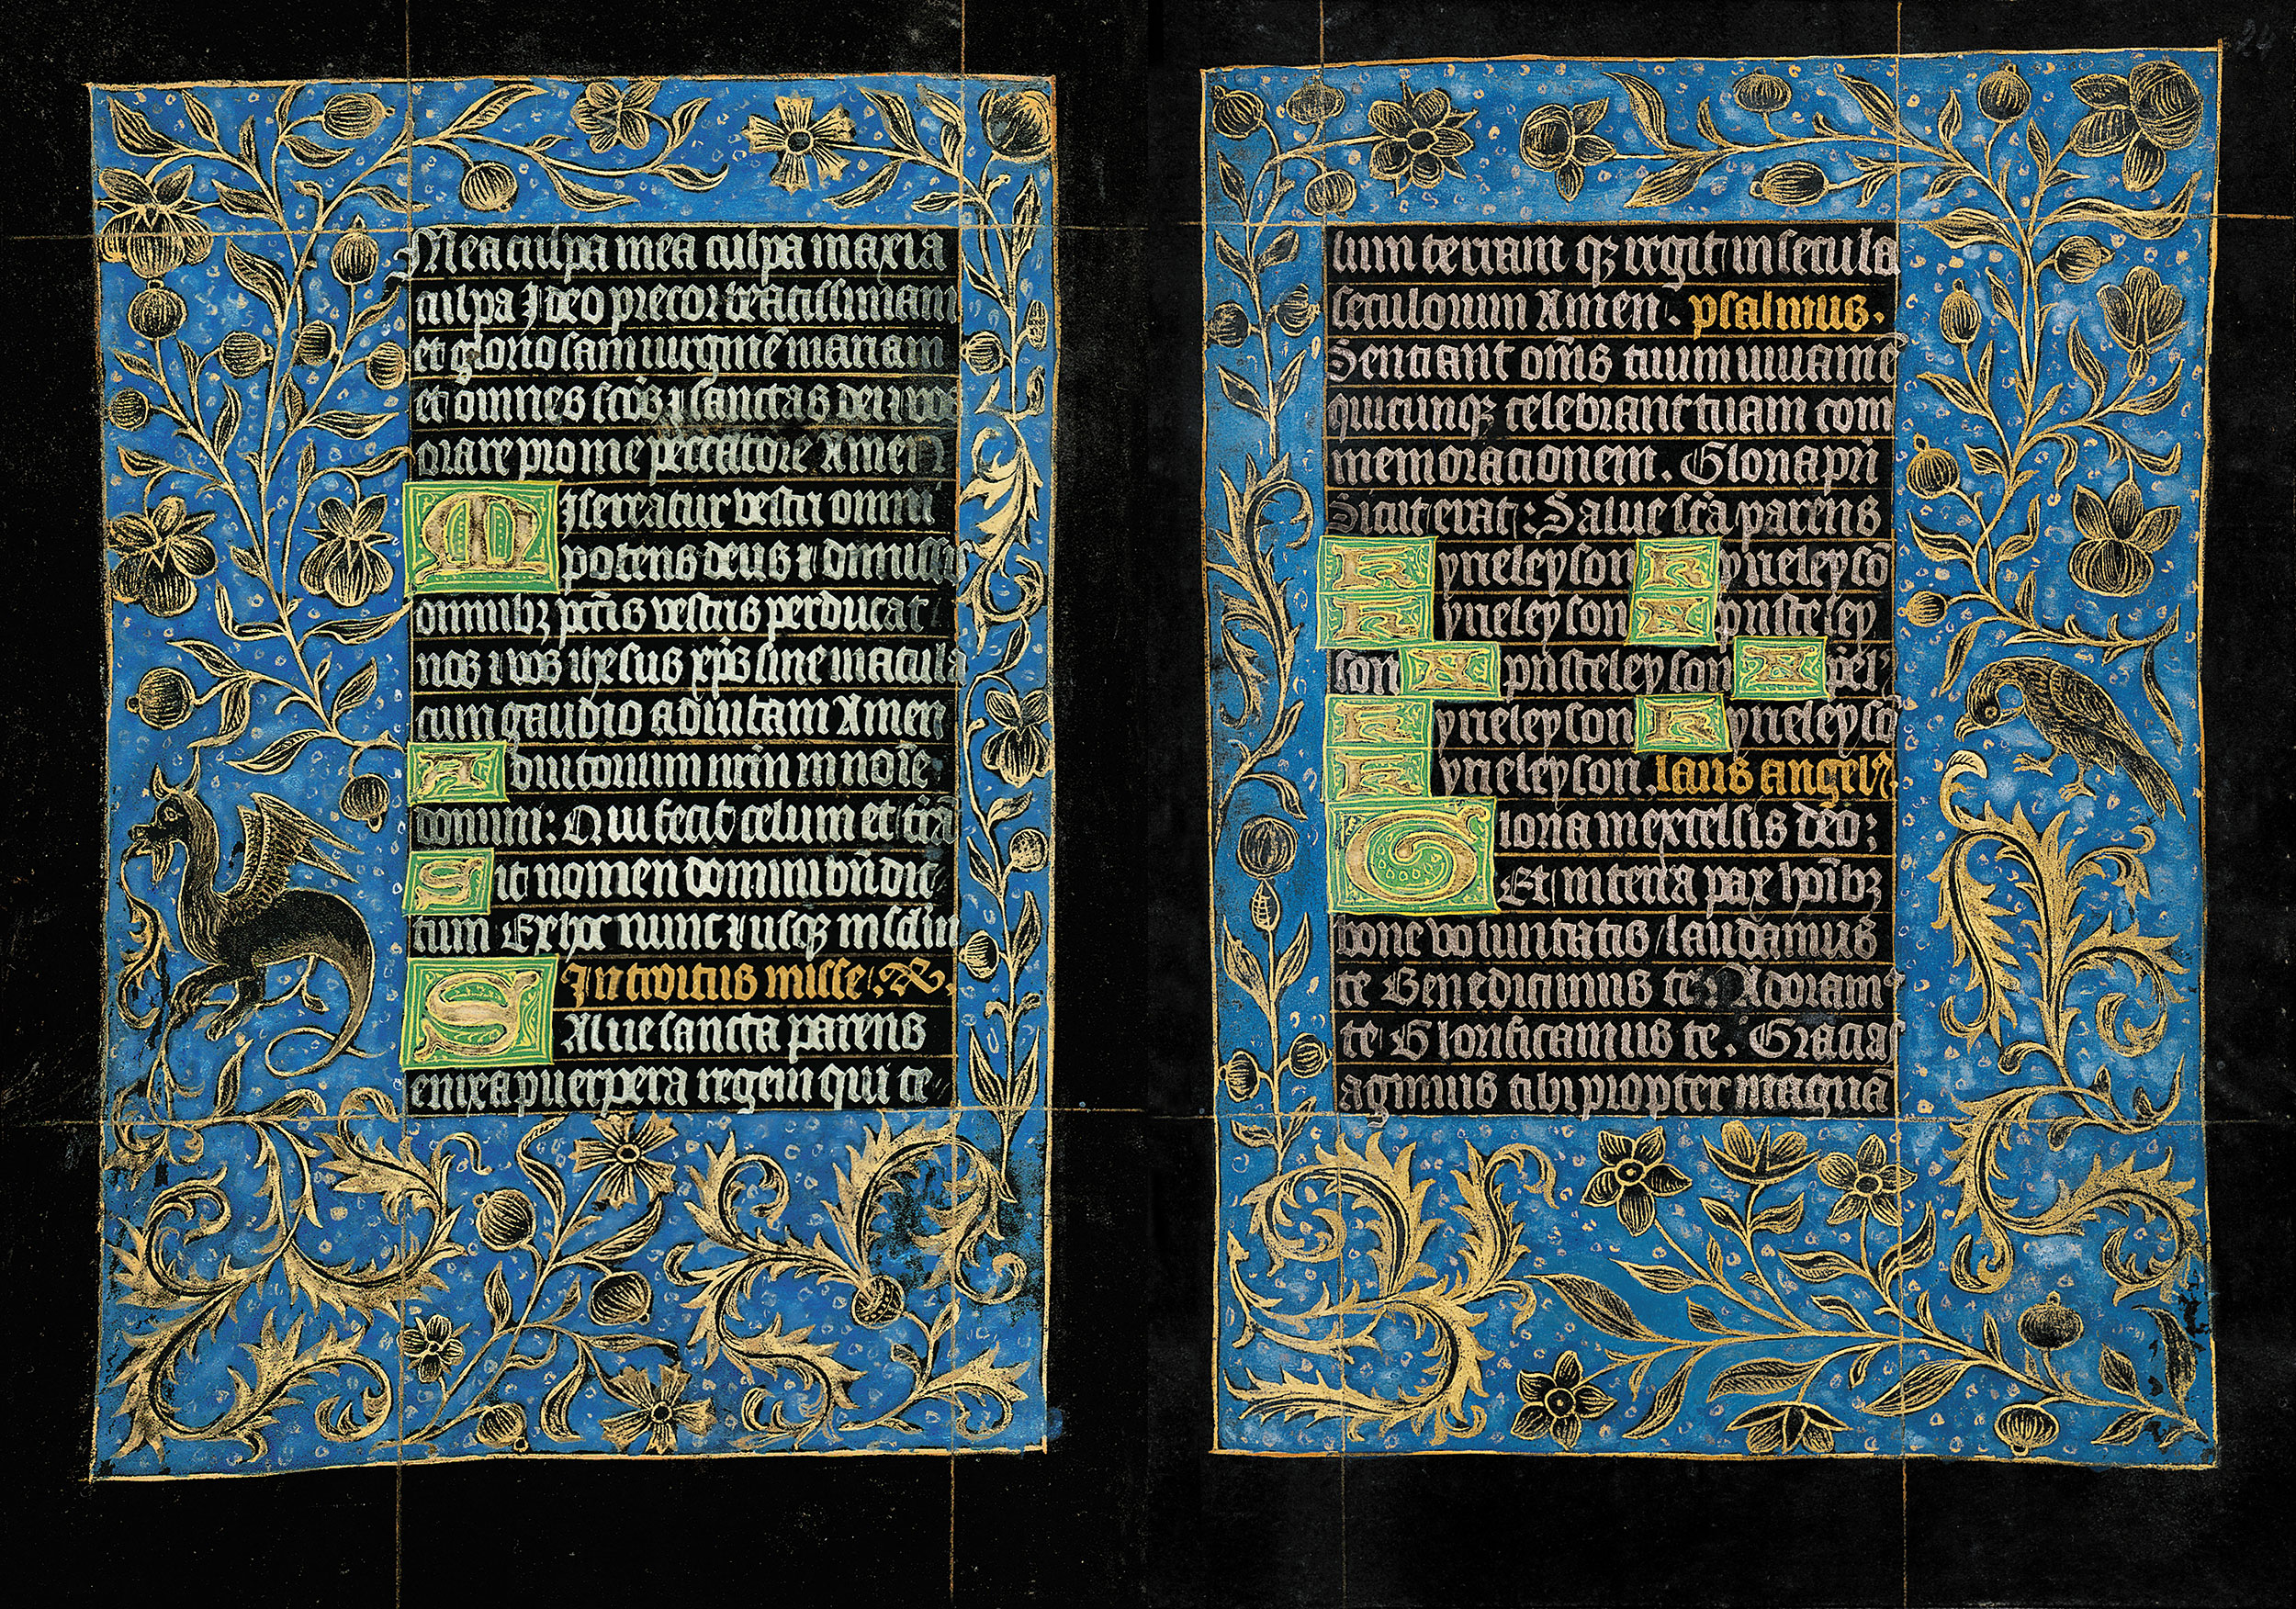 Mea culpa mea culpa maxīa
culpa Ideo precor beatissimam
et gloriosam uirginē mariam
et omnes scōs ⁊ sanctas dei ⁊ vos
orare pro me peccatore Amen
Misereatur vestri omni
potens deus ⁊ dimissis
omnibꝫ pctīs vestris perducat
nos ⁊ vos ihesus xp̄s sine macula
cum gaudio ad vitam Amen
Adiutorium nrm̄ in noīe
domini: Qui fecit celum et trā
Sit nomen domini bn̄dic
tum Ex hoc nunc ⁊ usqꝫ in sclm̄
Introitus misse.
Salue sancta parens
enixa puerpera regem qui ce
24
lum terram qꝫ regit in secula
seculorum Amen. psalmus.
Sentiant om̄s tuum iuuamē
quicunqꝫ celebrant tuam com
memorationem. Gloria pr̄i
Sicut erat: Salue scā parens
Kyrieleyson Kyrieleysō
Kyrieleyson Xpristeley
son Xpristeleyson Xp̄el'
Kyrieleyson Kyrieleysō
Kyrieleyson. laus angelꝝ
Gloria in excelsis deo:
Et in terra pax hoībꝫ
bone voluntatis laudamus
te Benedicimus te Adoramꝰ
te Glorificamus te. Gracias
agimus tibi propter magnā